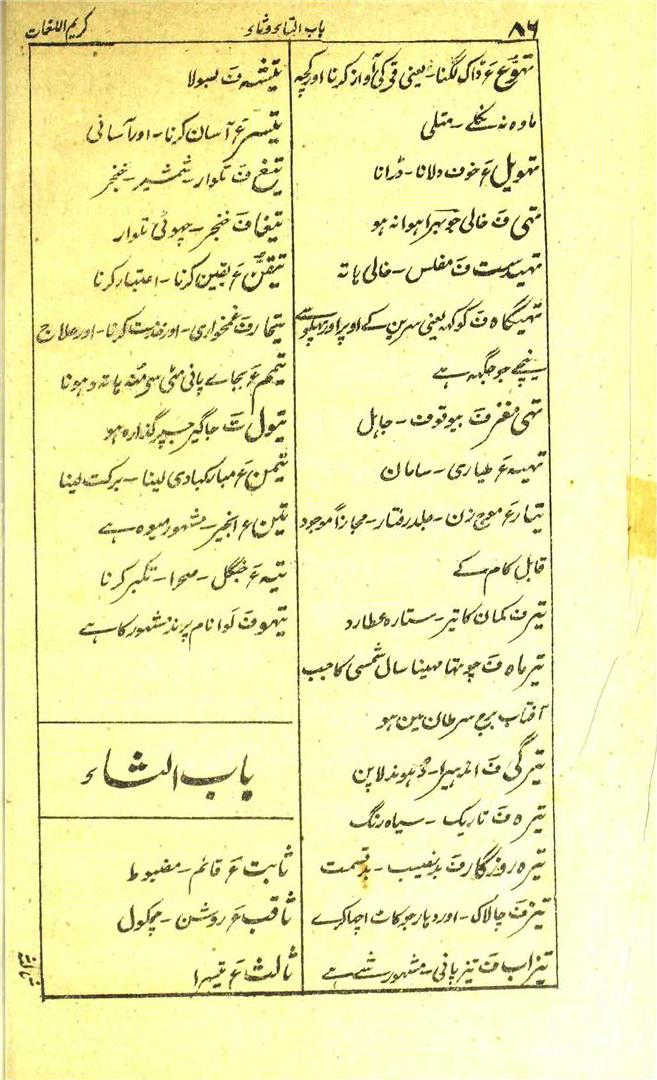 ۸۶
باب التاء وثاء
کریم اللغات
تہوّع ع ڈاک لگنا۔ یعنی قی کی آواز کرنا اور کچہ
مادہ نہ نکلے۔ متلی
تہویل ع خوف دلانا۔ ڈرانا
تہی ف خالی جو بہرا ہوا نہ ہو
تہیدست ف مفلس۔ خالی ہاتہ
تہیگاہ ف کوکہہ یعنی سرین کے اوپر اور پہلو سے
نیچے جو جگہہ ہے
تہی مغز ف بیوقوف۔ جاہل
تہیہ ع طیاری۔ سامان
تیار ع موج زن۔ جلد رفتار۔ مجازاً موجود
قابل کام کے
تیر ف کمان کا تیر۔ ستارہ عطارد
تیر ماہ ف چوتہا مہینا سال شمسی کا جب
آفتاب برج سرطان مین ہو
تیرگی ف اندہیرا۔ دہوندلاپن
تیرہ ف تاریک۔ سیاہ رنگ
تیرہ روزگار ف بدنصیب۔ بدقسمت
تیز ف چالاک۔ اور دہار جو کاٹ اچہا کرے
تیزاب ف تیز پانی۔ مشہور شے ہے
تیشہ ف بسولا
تیسر ع آسان کرنا۔ اور آسانی
تیغ ف تلوار۔ شمشیر۔ خنجر
تیغا ف خنجر۔ چہوٹی تلوار
تیقّن ع یقین کرنا۔ اعتبار کرنا
تیمار ف غمخواری۔ اور خدمت کرنا۔ اور علاج
تیمم ع بجاے پانی مٹی سی منہ ہاتہ دہونا
تیول ت جاگیر جسپر گذارہ ہو
تیمن ع مبارکبادی لینا۔ برکت لینا
تین ع انجیر۔ مشہور میوہ ہے
تیہ ع جنگل۔ صحرا۔ تکبر کرنا
تیہو ف لوا نام پرند مشہور کا ہے
باب الثاء
ثابت ع قائم۔ مضبوط
ثاقب ع روشن۔ چمکول
ثالث ع تیسرا